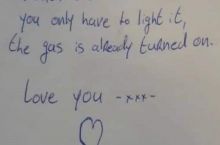 you only have to light it,
the gas is already turned on.
Love you -xxx-